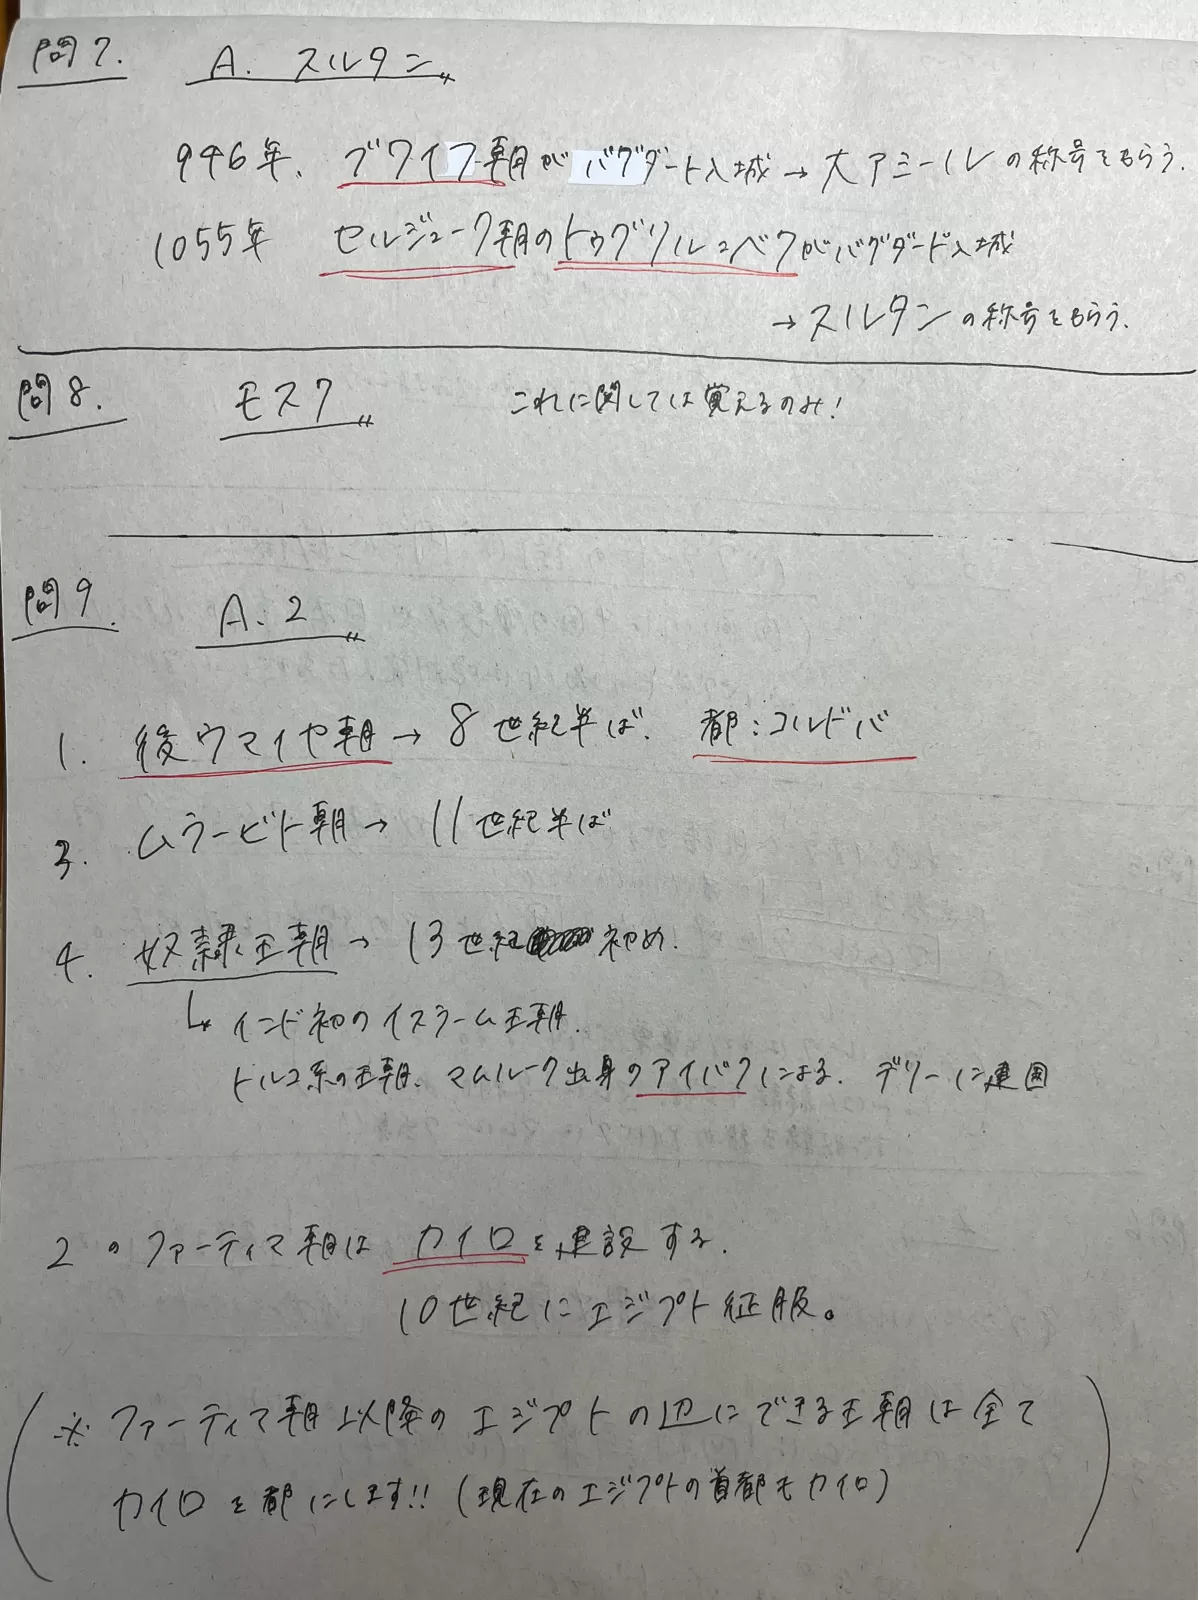 問7. A. スルタン
946年、ブワイフ朝がバグダート入城→大アミールの称号をもらう.
1055年 セルジューク朝のトゥグリル=ベクがバグダード入城
→スルタンの称号をもらう.
問8. モスク これに関しては覚えるのみ!
問9 A. 2
1. 後ウマイヤ朝→8世紀半ば. 都:コルドバ
3. ムラービト朝→11世紀半ば
4. 奴隷王朝→13世紀初め.
↳インド初のイスラーム王朝.
トルコ系の王朝. マムルーク出身のアイバクによる. デリーに建国
2のファーティマ朝はカイロを建設する.
10世紀にエジプト征服。
(※ファーティマ朝以降のエジプトの辺にできる王朝は全て
カイロを都にします!! (現在のエジプトの首都もカイロ))